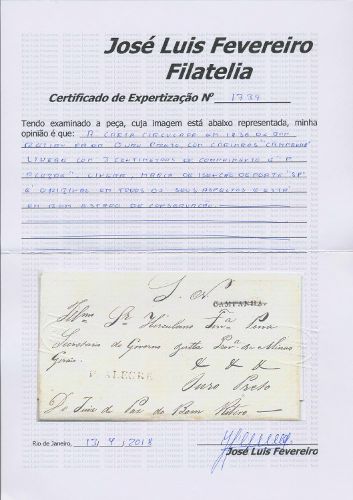 José Luis Fevereiro
Filatelia
Certificado de Expertização Nº 1739
Tendo examinado a peça, cuja imagem está abaixo representada, minha
opinião é que: A CARTA CIRCULADA EM 1836 DE
PARA OURO PRETO, COM CARIMBOS "CAMPANHA"
COM 3 CENTIMETROS DE COMPRIMENTO E "P
ALEGRE" MARCA DE ISENÇÃO DE PORTE "SP"
É ORIGINAL EM TODOS OS SEUS ASPECTOS E ESTÁ
EM BOM ESTADO DE CONSERVAÇÃO.
S. N.
CAMPANHA.
Illmo Sr. Herculano Ferra Penna
Secretario do Governo desta Prov.ª de Minas
Geraes
P. ALEGRE
& & &
Ouro Preto
Do Juiz de Paz do Bom Retiro
Rio de Janeiro, 13/9/2018
José Luis Fevereiro